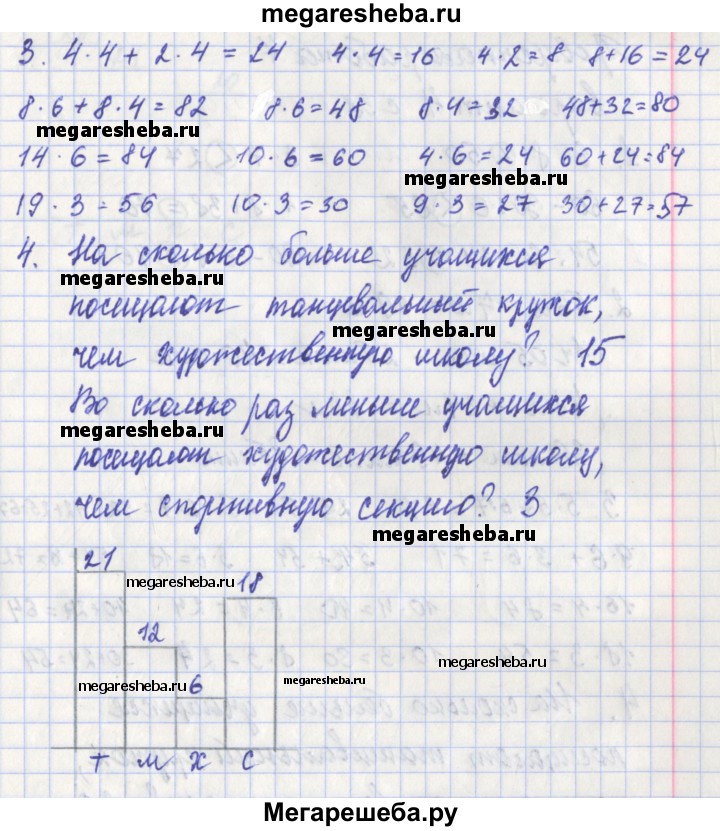 megaresheba.ru
3. 4·4 + 2·4 = 24 4·4=16 4·2=8 8+16=24
8·6+8·4=82 8·6=48 8·4=32 48+32=80
megaresheba.ru
14·6=84 10·6=60 4·6=24 60+24=84
megaresheba.ru
19·3=56 10·3=30 9·3=27 30+27=57
4. На сколько больше учащихся
megaresheba.ru
посещают танцевальный кружок,
megaresheba.ru
чем художественную школу? 15
Во сколько раз меньше учащихся
megaresheba.ru
посещают художественную школу,
чем спортивную секцию? 3
megaresheba.ru
21
megaresheba.ru 18
12
megaresheba.ru
megaresheba.ru 6 megaresheba.ru
т м х с
Мегарешеба.ру